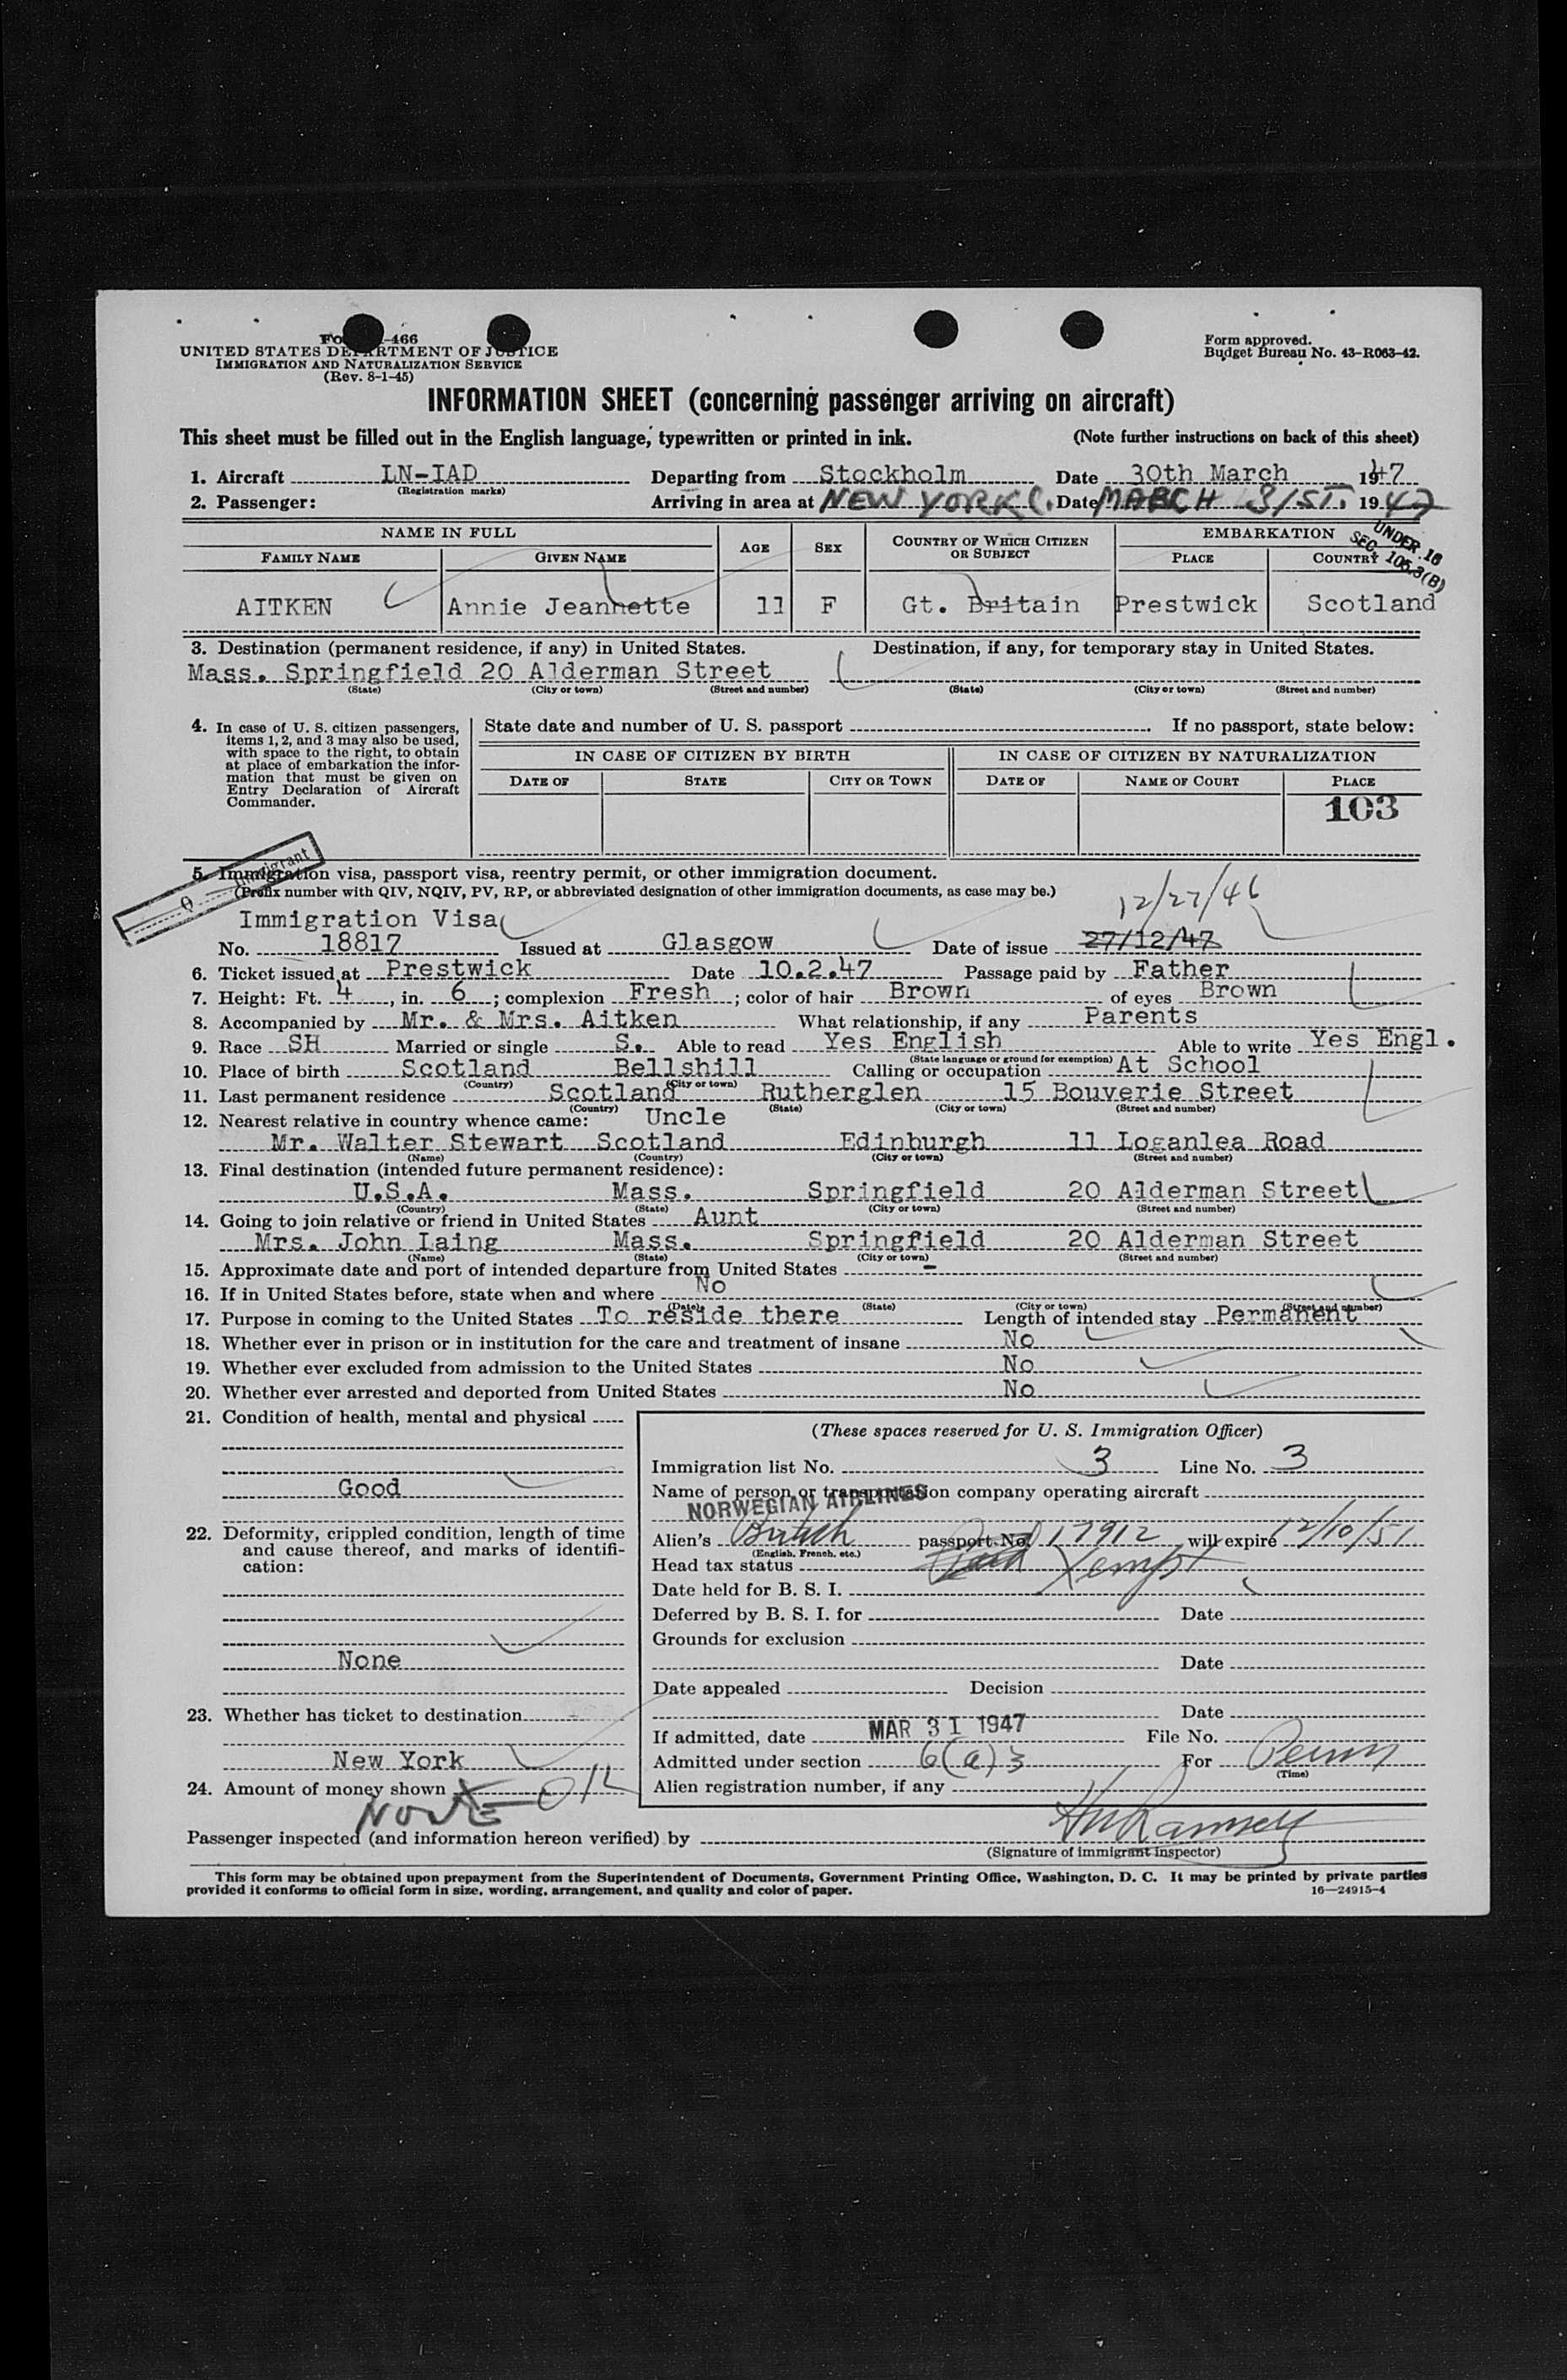 Fo -466
UNITED STATES DEPARTMENT OF JUSTICE
IMMIGRATION AND NATURALIZATION SERVICE
(Rev. 8-1-45)
Form approved.
Budget Bureau No. 43-R063-42.
INFORMATION SHEET (concerning passenger arriving on aircraft)
This sheet must be filled out in the English language, typewritten or printed in ink. (Note further instructions on back of this sheet)
1. Aircraft LN-IAD Departing from Stockholm Date 30th March 1947
(Registration marks)
2. Passenger: Arriving in area at NEW YORK C. Date MARCH 31ST. 1947
NAME IN FULL AGE SEX COUNTRY OF WHICH CITIZEN OR SUBJECT EMBARKATION
UNDER 16
SEC. 105.3(B)
FAMILY NAME GIVEN NAME PLACE COUNTRY
AITKEN Annie Jeannette 11 F Gt. Britain Prestwick Scotland
3. Destination (permanent residence, if any) in United States. Destination, if any, for temporary stay in United States.
Mass. Springfield 20 Alderman Street
(State) (City or town) (Street and number) (State) (City or town) (Street and number)
4. In case of U. S. citizen passengers, items 1, 2, and 3 may also be used, with space to the right, to obtain at place of embarkation the information that must be given on Entry Declaration of Aircraft Commander.
State date and number of U. S. passport If no passport, state below:
IN CASE OF CITIZEN BY BIRTH IN CASE OF CITIZEN BY NATURALIZATION
DATE OF STATE CITY OR TOWN DATE OF NAME OF COURT PLACE
103
Immigrant
5. Immigration visa, passport visa, reentry permit, or other immigration document.
(Prefix number with QIV, NQIV, PV, RP, or abbreviated designation of other immigration documents, as case may be.)
12/27/46
Immigration Visa
No. 18817 Issued at Glasgow Date of issue 27/12/47
6. Ticket issued at Prestwick Date 10.2.47 Passage paid by Father
7. Height: Ft. 4, in. 6; complexion Fresh; color of hair Brown of eyes Brown
8. Accompanied by Mr. & Mrs. Aitken What relationship, if any Parents
9. Race SH Married or single S. Able to read Yes English Able to write Yes Engl.
(State language or ground for exemption)
10. Place of birth Scotland Bellshill Calling or occupation At School
(Country) (City or town)
11. Last permanent residence Scotland Rutherglen 15 Bouverie Street
(Country) (State) (City or town) (Street and number)
12. Nearest relative in country whence came: Uncle
Mr. Walter Stewart Scotland Edinburgh 11 Loganlea Road
(Name) (Country) (City or town) (Street and number)
13. Final destination (intended future permanent residence):
U.S.A. Mass. Springfield 20 Alderman Street
(Country) (State) (City or town) (Street and number)
14. Going to join relative or friend in United States Aunt
Mrs. John Laing Mass. Springfield 20 Alderman Street
(Name) (State) (City or town) (Street and number)
15. Approximate date and port of intended departure from United States -
16. If in United States before, state when and where No
(Date) (State) (City or town) (Street and number)
17. Purpose in coming to the United States To reside there Length of intended stay Permanent
18. Whether ever in prison or in institution for the care and treatment of insane No
19. Whether ever excluded from admission to the United States No
20. Whether ever arrested and deported from United States No
21. Condition of health, mental and physical
Good
22. Deformity, crippled condition, length of time and cause thereof, and marks of identification:
None
23. Whether has ticket to destination
New York
24. Amount of money shown
NONE OK
(These spaces reserved for U. S. Immigration Officer)
Immigration list No. 3 Line No. 3
Name of person or transportation company operating aircraft
NORWEGIAN AIRLINES
Alien's British passport No. 17912 will expire 12/10/51
(English, French, etc.)
Head tax status Paid Xempt
Date held for B. S. I.
Deferred by B. S. I. for Date
Grounds for exclusion
Date
Date appealed Decision
Date
If admitted, date MAR 31 1947 File No.
Admitted under section 6(a)3 For Perm
(Time)
Alien registration number, if any
Passenger inspected (and information hereon verified) by
(Signature of immigrant inspector)
This form may be obtained upon prepayment from the Superintendent of Documents, Government Printing Office, Washington, D. C. It may be printed by private parties
provided it conforms to official form in size, wording, arrangement, and quality and color of paper. 16—24915-4